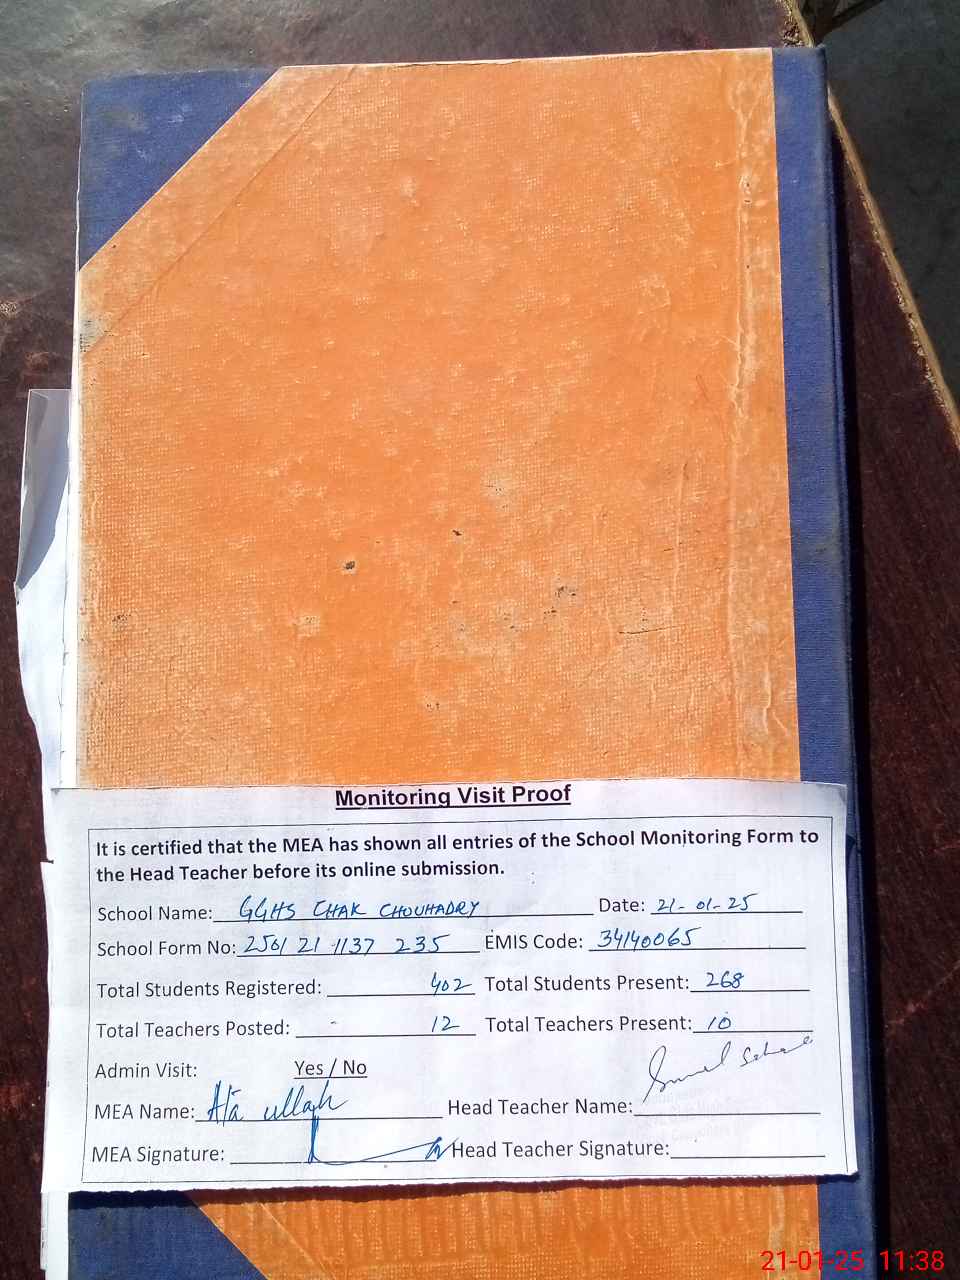 Monitoring Visit Proof
It is certified that the MEA has shown all entries of the School Monitoring Form to
the Head Teacher before its online submission.
School Name: GGHS CHAK CHOUHADRY Date: 21-01-25
School Form No: 2501 21 1137 235 EMIS Code: 34140065
Total Students Registered: 402 Total Students Present: 268
Total Teachers Posted: 12 Total Teachers Present: 10
Admin Visit: Yes / No
MEA Name: Ata ullah Head Teacher Name:
MEA Signature: Head Teacher Signature:
21-01-25 11:38